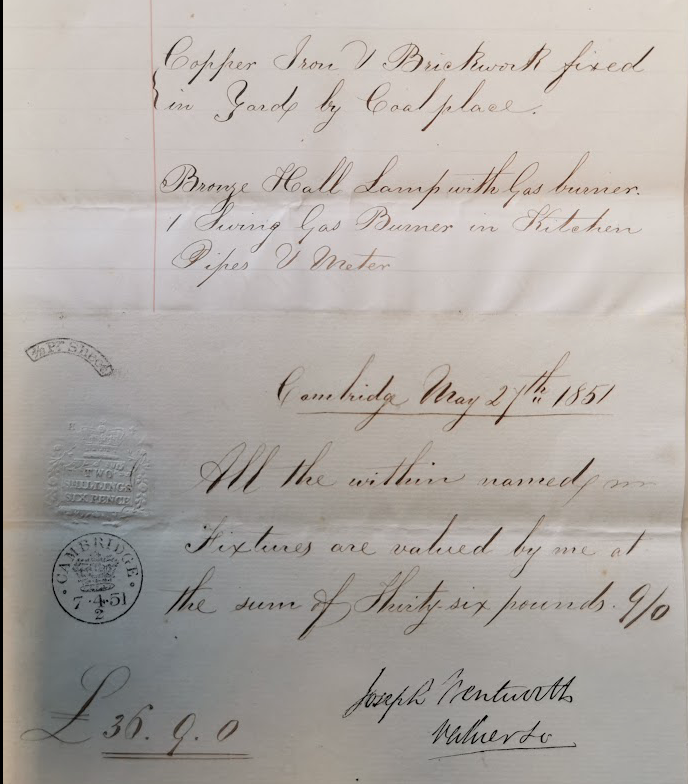 Copper Iron & Brickwork fixed
in Yard by Coal place.
Bronze Hall Lamp with Gas burner.
1 Swing Gas Burner in Kitchen
Pipes & Meter
Cambridge May 27th 1851
All the within named
TWO
SHILLINGS
SIX PENCE
Fixtures are valued by me at
CAMBRIDGE
7·4·51
2
the sum of Thirty-six pounds. 9/0
Joseph Wentworth
Valuer &c
£36.9.0